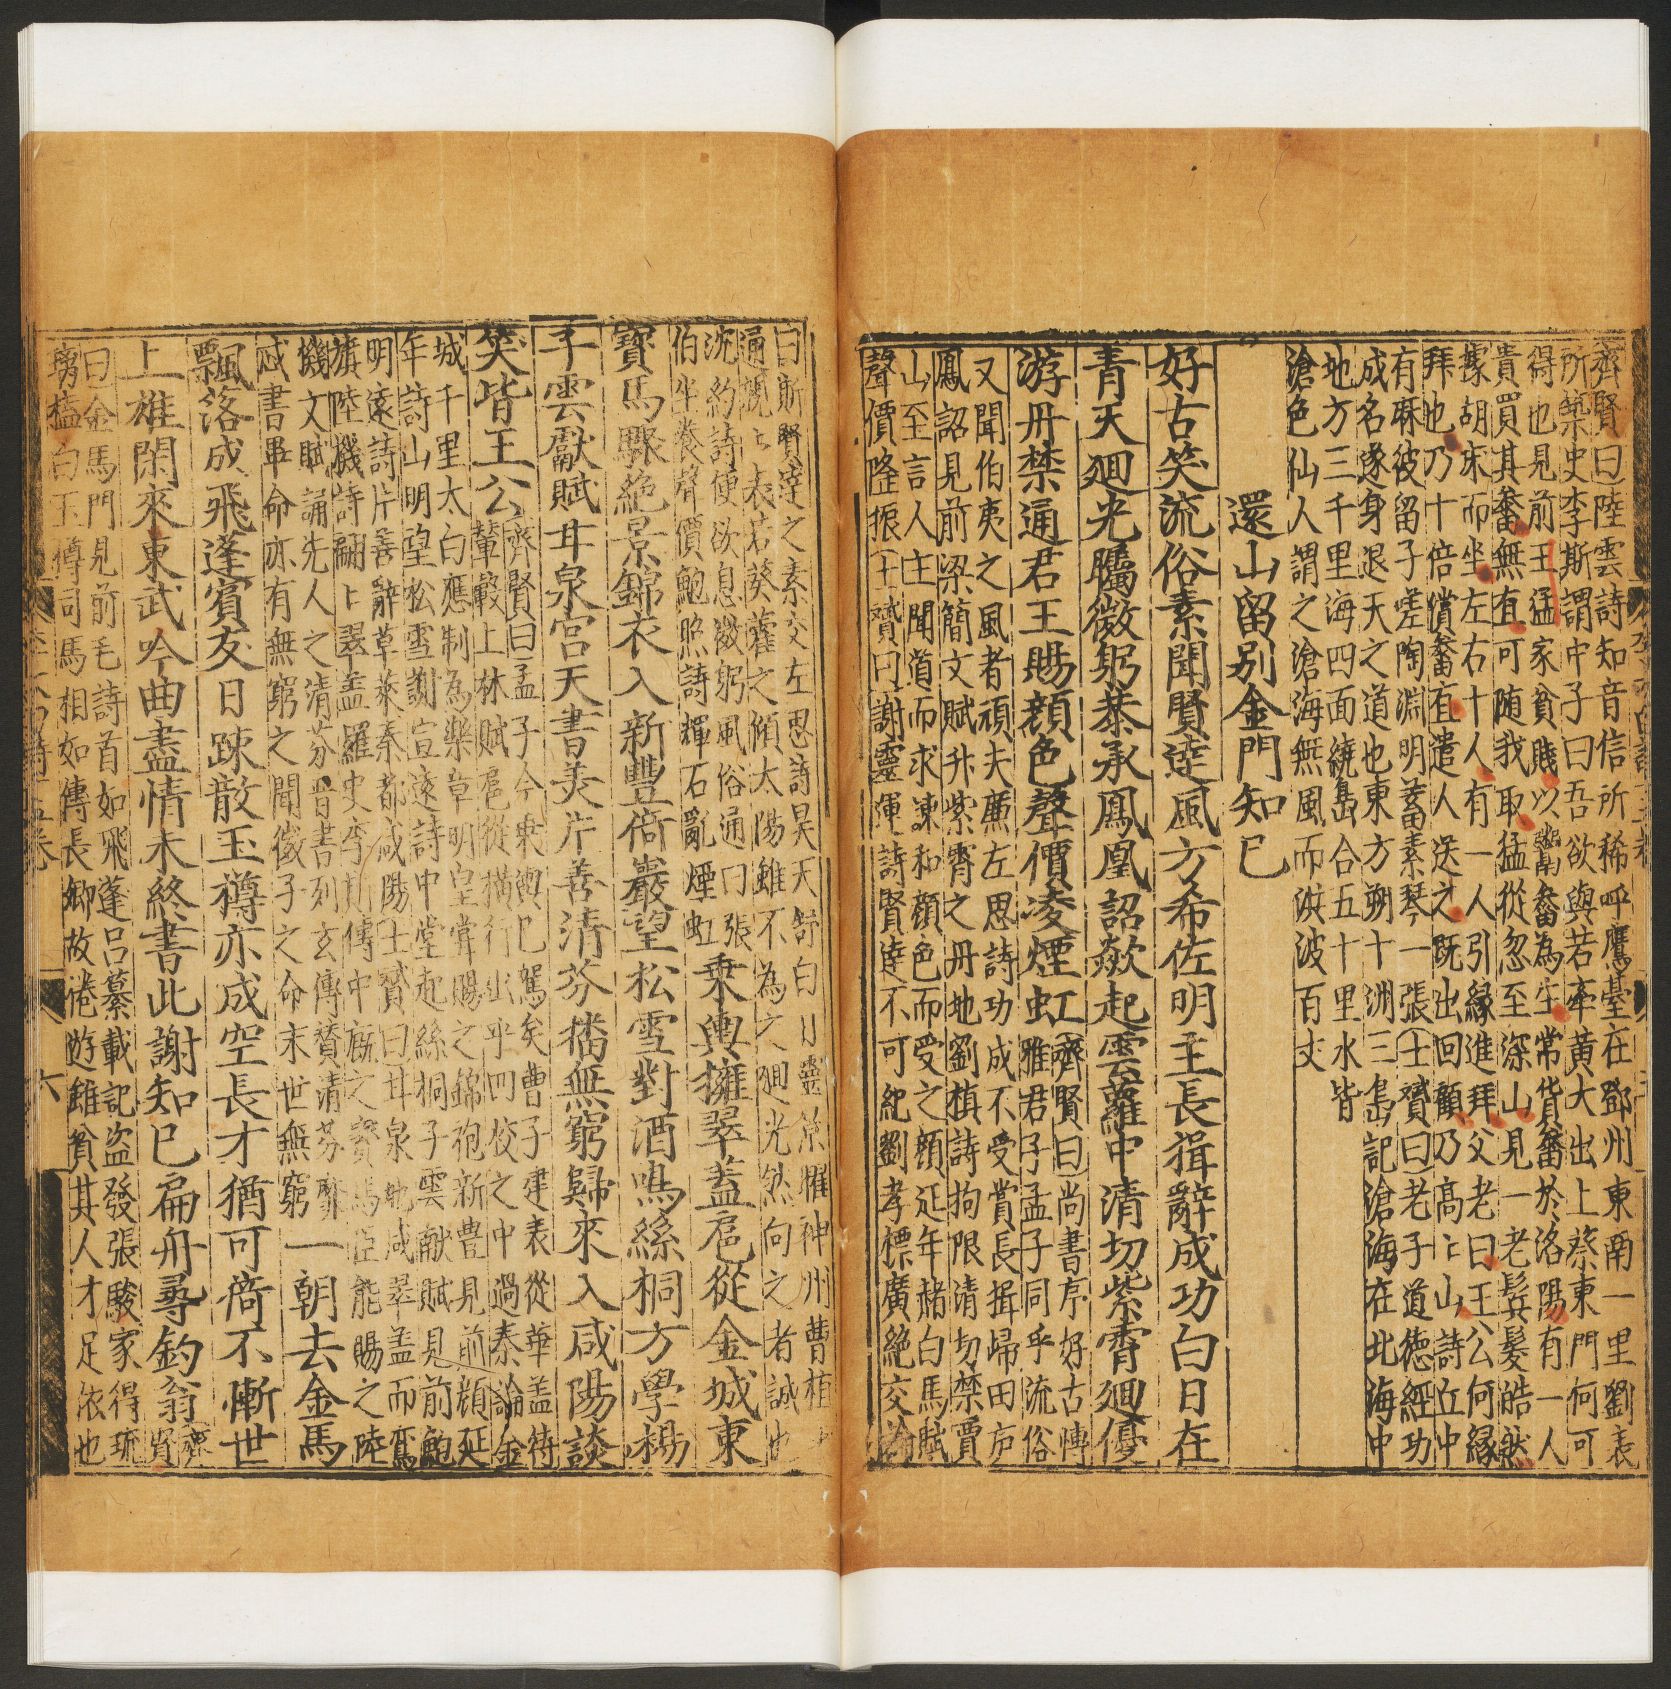 齊賢曰陸雲詩知音信所稀呼鷹臺在鄧州東南一里劉表
所築史李斯謂中子曰吾欲與若牽黃犬出上蔡東門何可
得也見前王猛家貧賤以鬻畚為生常貨畚於洛陽有一人
貴買其畚無直可随我取猛從忽至深山見一老髯髮皓然
據胡床而坐左右十人有一人引緣進拜父老曰王公何緣
拜也乃十倍償畚直遣人送之既出回顧乃高ミ山詩丘中
有麻彼留子嗟陶淵明蓄素琴一張士贇曰老子道徳經功
成名遂身退天之道也東方朔十洲三島記滄海在北海中
地方三千里海四面繞島合五十里水皆
滄色仙人謂之滄海無風而洪波百丈
還山留別金門知己
好古笑流俗素聞賢達風方希佐明主長揖辭成功白日在
青天廻光矚微躬恭承鳳凰詔欻起雲蘿中清切紫霄廻優
游丹禁通君王賜顔色聲價凌煙虹
齊賢曰尚書序好古慱
雅君子孟子同乎流俗
又聞伯夷之風者頑夫廉左思詩功成不受賞長揖歸田庐
鳳詔見前梁簡文賦升紫霄之丹地劉楨詩拘限清切禁賈
山至言人主聞道而求諫和顔色而受之顔延年赭白馬賦
聲價隆振士贇曰謝靈運詩賢達不可紀劉孝標廣絶交論
曰斯賢達之素交左思詩昊天舒白日靈景耀神州曹植
通親ミ表若葵藿之傾太陽雖不為之廻光然向之者誠也
沈約詩便欲息微躬風俗通曰張
伯坐養聲價鮑照詩輝石亂煙虹
乗輿擁翠盖扈從金城東
寳馬驟絶景錦衣入新豐倚巖望松雪對酒鳴絲桐方學楊
子雲獻賦甘泉宮天書美片善清芬播無窮歸來入咸陽談
笑皆王公
齊賢曰孟子今乗輿已駕矣曹子建表從華盖侍
輦轂上林賦扈從橫行出乎四校之中過秦論金
城千里太白應制為樂章明皇嘗賜之錦袍新豊見前顔延
年詩山明望松雪謝宣遠詩中堂起絲桐子雲献賦見前鮑
明遠詩片善辭草萊秦都咸陽士贇曰甘泉地咸翠盖而鸞
旗陸機詩翩ミ翠盖羅史李斯傳中廐之寳馬臣能賜之陸
機文賦誦先人之清芬晋書列玄傳贊清芬
咸書畢命亦有無窮之聞微子之命末世無窮
一朝去金馬
飄落成飛蓬賓友日踈散玉樽亦成空長才猶可倚不慚世
上雄閑來東武吟曲盡情未終書此謝知己扁舟尋釣翁
齊賢
曰金馬門見前毛詩首如飛蓬吕纂載記盗發張駿家得琉
璃榼白玉樽司馬相如傳長卿故倦遊雖貧其人才足依也
六